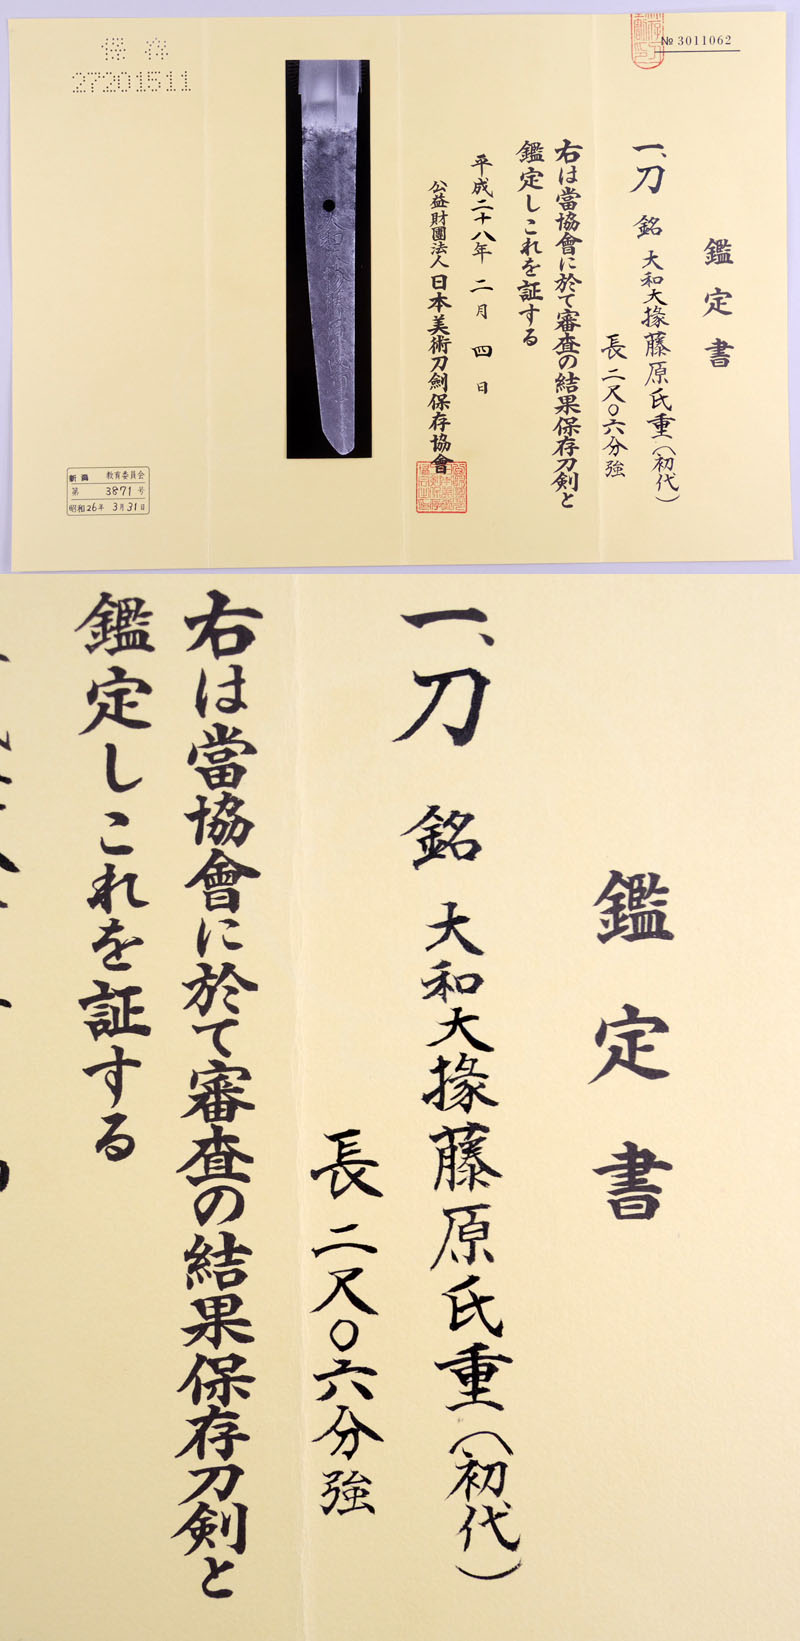 保存
27201511
№ 3011062
鑑定書
一、刀 銘 大和大掾藤原氏重(初代)
長 二尺〇六分強
右は當協會に於て審査の結果保存刀剣と
鑑定しこれを証する
平成二十八年 二月 四日
公益財團法人 日本美術刀劍保存協會
教育委員会
第 3871 号
昭和26年 3月31日
鑑定書
一、刀 銘 大和大掾藤原氏重(初代)
長 二尺〇六分強
右は當協會に於て審査の結果保存刀剣と
鑑定しこれを証する